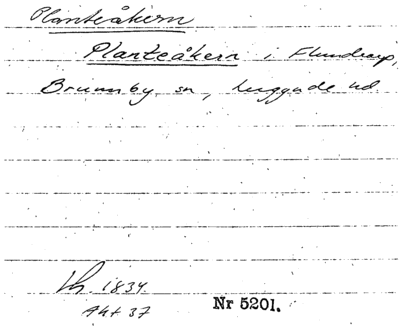 Planteåkern
Planteåkern i Flundrarp,
Brunnby sn, Luggude hd
Lh. 1834.
Akt 37
Nr 5201.